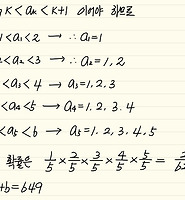 K < aₖ < K+1 이어야 하므로
1 < a₁ < 2 → ∴ a₁=1
< a₂ < 3 → ∴ a₂=1, 2
< a₃ < 4 → a₃=1, 2, 3
< a₄ < 5 → a₄=1. 2. 3. 4
< a₅ < 6 → a₅=1. 2. 3. 4. 5
확률은 1/5 × 2/5 × 3/5 × 4/5 × 5/5 =
+b=649